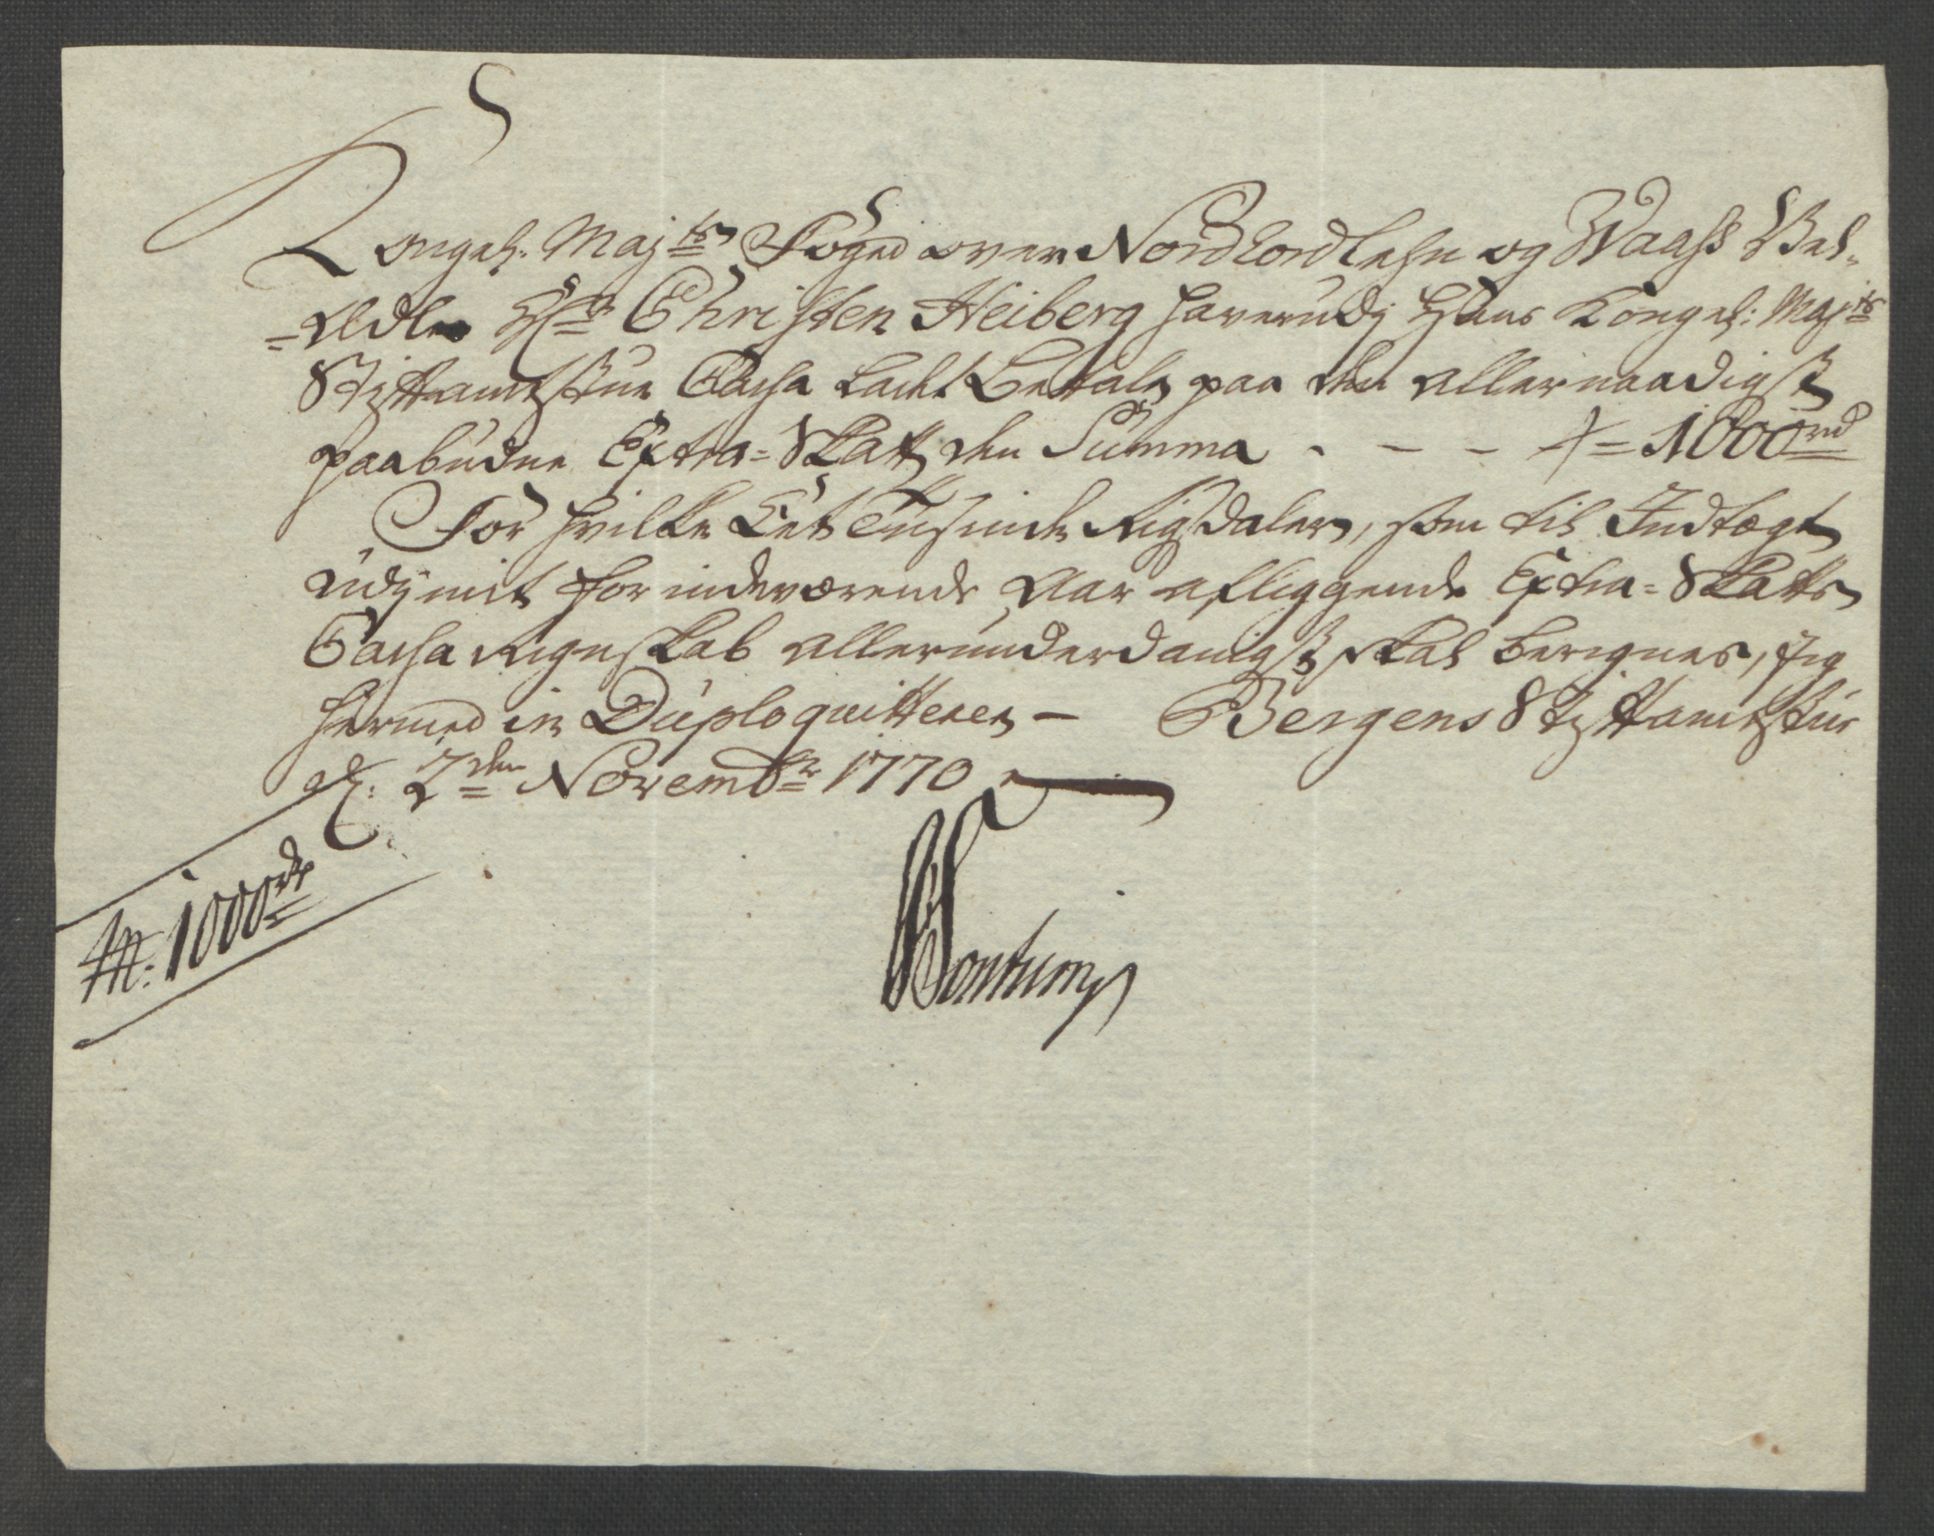 Kongel: Majts Foged over Nordhordlehn og Waass Vel-
=Ædle Hr Christen Heiberg haver udj Hans Kongel: Majts
Stiftamtstue Cassa ladet betale paa den allernaadigst
paabudne Extra=Skatt den Summa - - - = 1000rd
For hvilke Eet Tusinde Rigsdaler, som til Indtægt
udj mit for indeværende Aar aflæggende Extra=Skatts
Cassa Regnskab allerunderdanigst skal beregnes, jeg
hermed in Duplo quitterer - Bergens Stiftamtstue
d: 2den Novembr 1770
1000rd